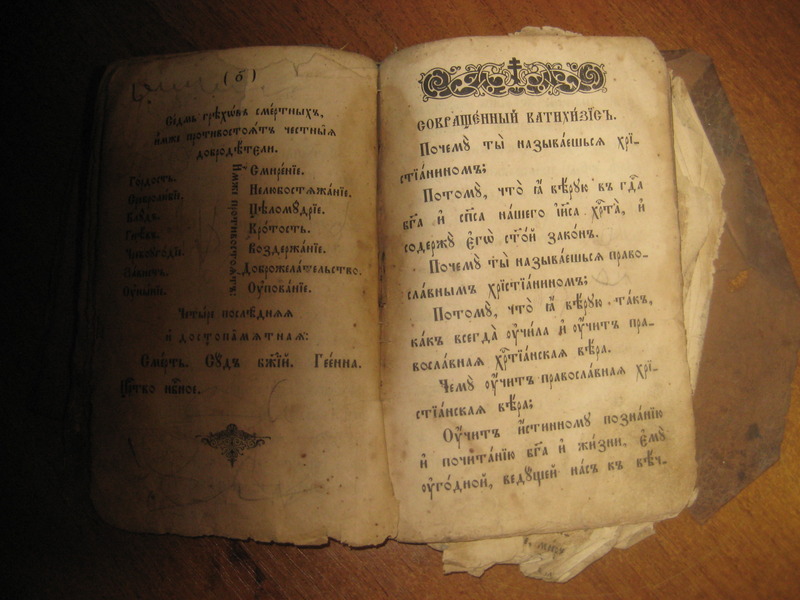 (ѕ҃)
Се́дмь грѣхѡ́въ сме́ртныхъ,
и҆̀мже противостоѧ́тъ честны̑ѧ
добродѣ́тели.
Го́рдость. Смире́нїе.
Нелюбостѧжа́нїе.
Блꙋ́дъ. Цѣломꙋ́дрїе.
Гнѣ́въ. Кро́тость.
Чревоꙋго́дїе. Воздержа́нїе.
За́висть. Доброжела́тельство.
Оу҆ны́нїе. Оу҆пова́нїе.
Четы́ре послѣ́днѧѧ
и҆ достопа́мѧтнаѧ:
Сме́рть. Сꙋ́дъ бж҃їй. Гее́нна.
Црⷭ҇тво нбⷭ҇ное.
СОКРАЩЕ́ННЫЙ КАТИХИ́ЗІСЪ.
Почемꙋ̀ ты̀ называ́ешьсѧ хрї-
стїа́ниномъ;
Потомꙋ̀, что̀ ѧ҆̀ вѣ́рꙋю въ гдⷭ҇а
бг҃а и҆ сп҃са на́шего і҆и҃са хрⷭ҇та̀, и҆
содержꙋ̀ є҆гѡ̀ ст҃о́й зако́нъ.
Почемꙋ̀ ты̀ называ́ешьсѧ право-
сла́внымъ хрїстїа́ниномъ;
Потомꙋ̀, что̀ ѧ҆̀ вѣ́рꙋю та́къ,
ка́къ всегда̀ оу҆чи́ла и҆ оу҆́читъ пра-
восла́внаѧ хрⷭ҇тїа́нскаѧ вѣ́ра.
Чемꙋ̀ оу҆́читъ правосла́внаѧ хрї-
стїа́нскаѧ вѣ́ра;
Оу҆́читъ и҆́стинномꙋ позна́нїю
и҆ почита́нїю бг҃а и҆ жи́зни, є҆мꙋ̀
оу҆го́дной, ведꙋ́щей на́съ къ вѣ́ч-